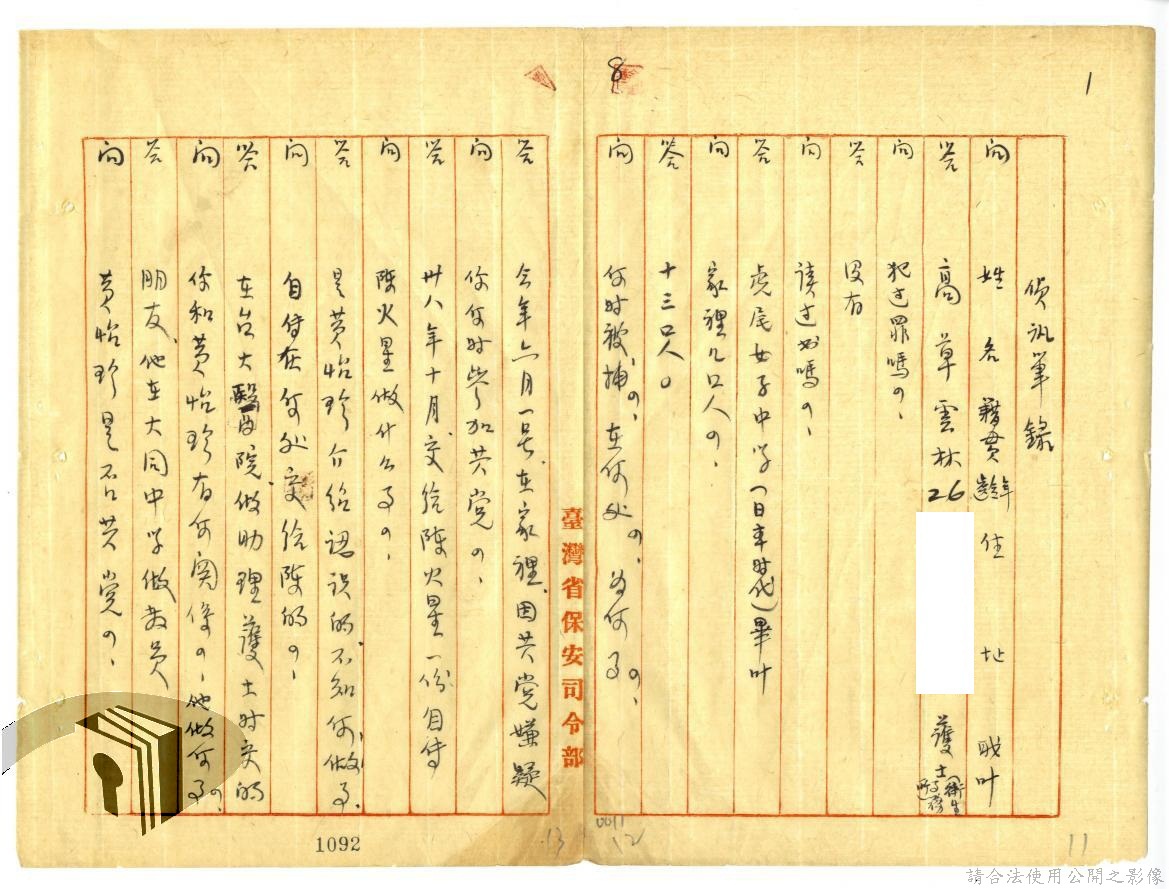 8
1
偵訊筆錄
问 姓名籍贯年齡住址 职叶
答 高草雲林26 護士(衛生所)
问 犯过罪嗎?
答 没有
问 读过书嗎?
答 虎尾女子中学(日本时代)畢叶
问 家裡几口人?
答 十三口人。
问 何时被捕?在何处?为何事?
臺灣省保安司令部
答 今年六月一号,在家裡,因共党嫌疑
问 你何时参加共党?
答 卅八年十月,交给陈火星一份自传
问 陈火星做什么事?
答 是黄怡珍介绍认识的,不知何做事
问 自传在何处交给陈的?
答 在台大醫院做助理護士时交的
问 你和黄怡珍有何关係?他做何事?
答 朋友,他在大同中学做教员
问 黄怡珍是否共党?
1092
13
0011
12
11
請合法使用公開之影像